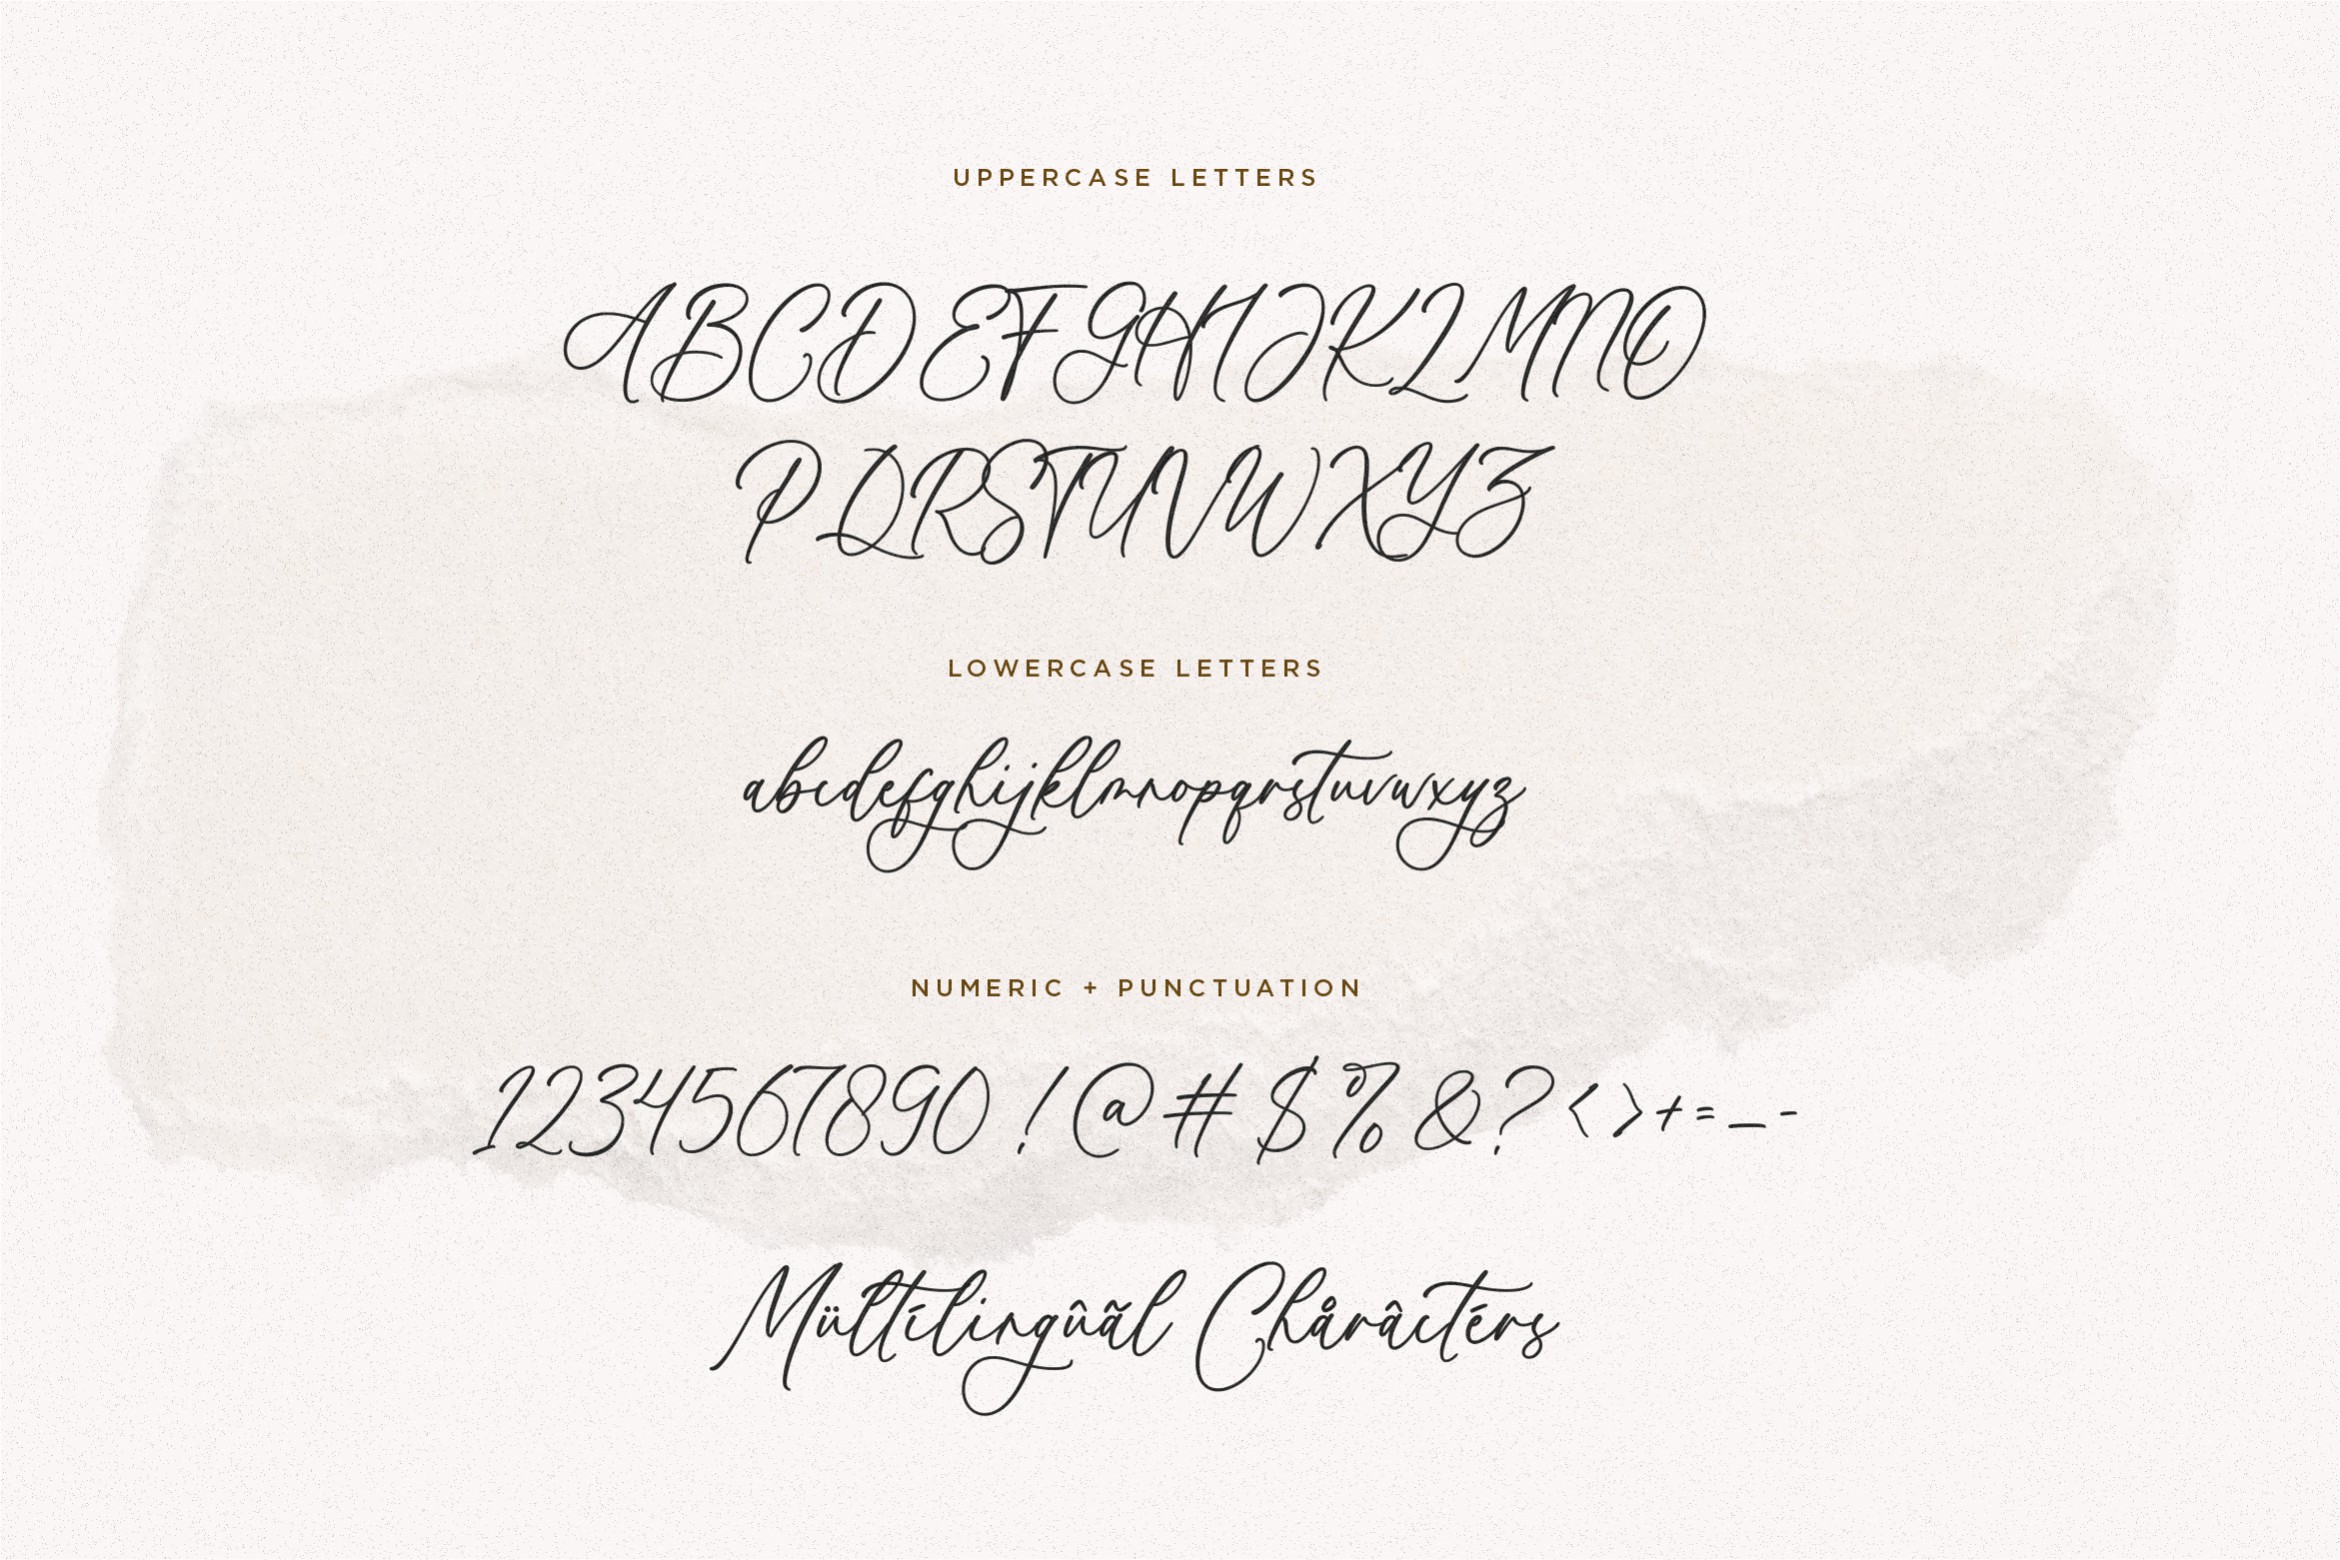 UPPERCASE LETTERS
ABCDEFGHIJKLMNO
PQRSTUVWXYZ
LOWERCASE LETTERS
abcdefghijklmnopqrstuvwxyz
NUMERIC + PUNCTUATION
1234567890 ! @ # $ % & ? < > + = _ -
Mültílingûãl Chårâctérs